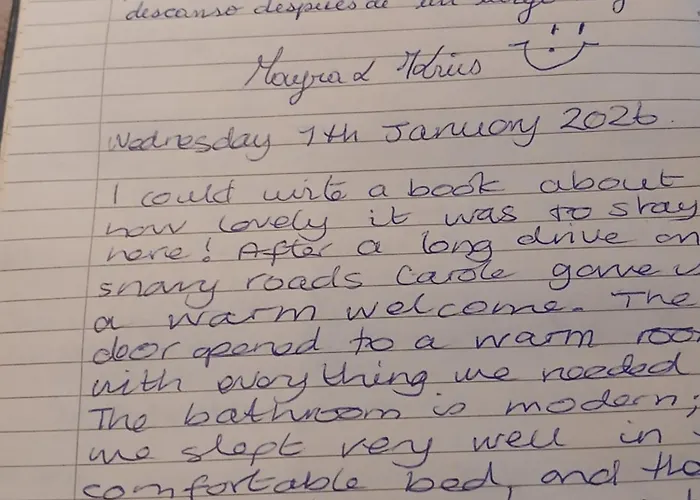 descanso después de un
Mayra & Idrius
Wednesday 7th January 2026.
I could write a book about
how lovely it was to stay
here! After a long drive on
snowy roads Carole gave
a warm welcome. The
door opened to a warm roo
with everything we needed
The bathroom is modern;
we slept very well in
comfortable bed, and tha